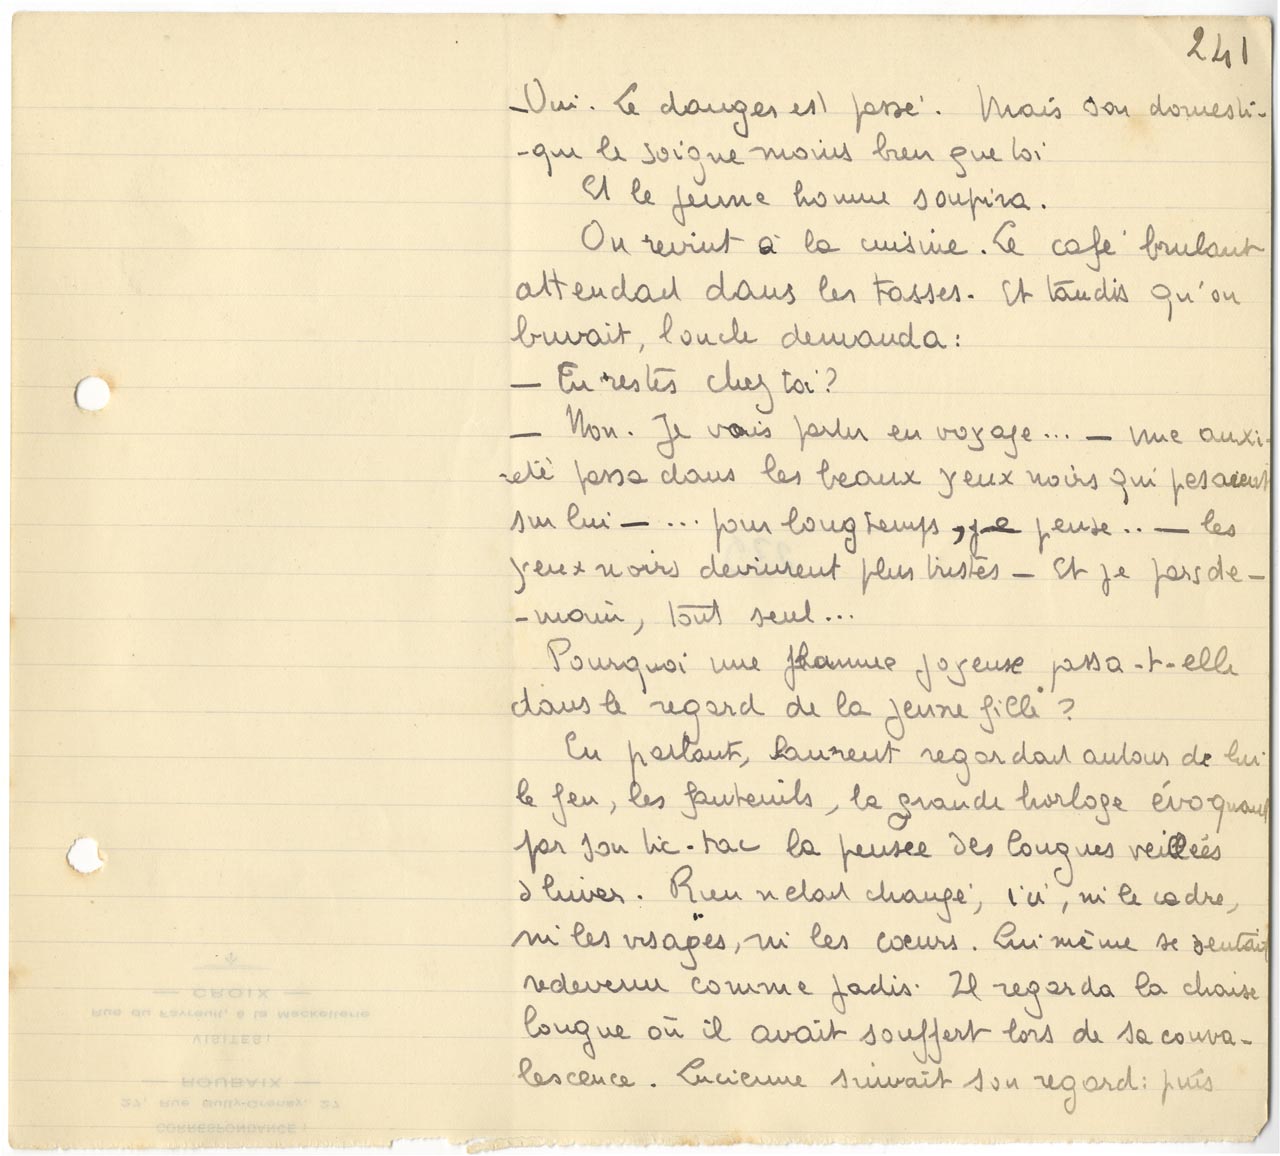 241
-Oui. Le danger est passé. Mais son domesti-
-que le soigne moins bien que toi
Et le jeune homme soupira.
On revint à la cuisine. Le café brulant
attendait dans les tasses. Et tandis qu'on
buvait, l'oncle demanda:
— Tu restes chez toi?
— Non. Je vais partir en voyage... — une anxi-
-été passa dans les beaux yeux noirs qui pesaient
sur lui — ... pour longtemps, je pense.. — les
yeux noirs devinrent plus tristes — Et je pars de-
-main, tout seul...
Pourquoi une flamme joyeuse passa-t-elle
dans le regard de la jeune fille?
En parlant, Laurent regardait autour de lui
le feu, les fauteuils, la grande horloge évoquant
par son tic-tac la pensée des longues veillées
d'hiver. Rien n'était changé, ici, ni le cadre,
ni les visages, ni les cœurs. Lui même se sentait
redevenu comme jadis. Il regarda la chaise
longue où il avait souffert lors de sa conva-
lescence. Lucienne suivait son regard: puis
CROIX
Rue du Favreuil, à la Mackellerie
VISITES:
ROUBAIX
27, Rue Dully-Grenay, 27
CORRESPONDANCE: